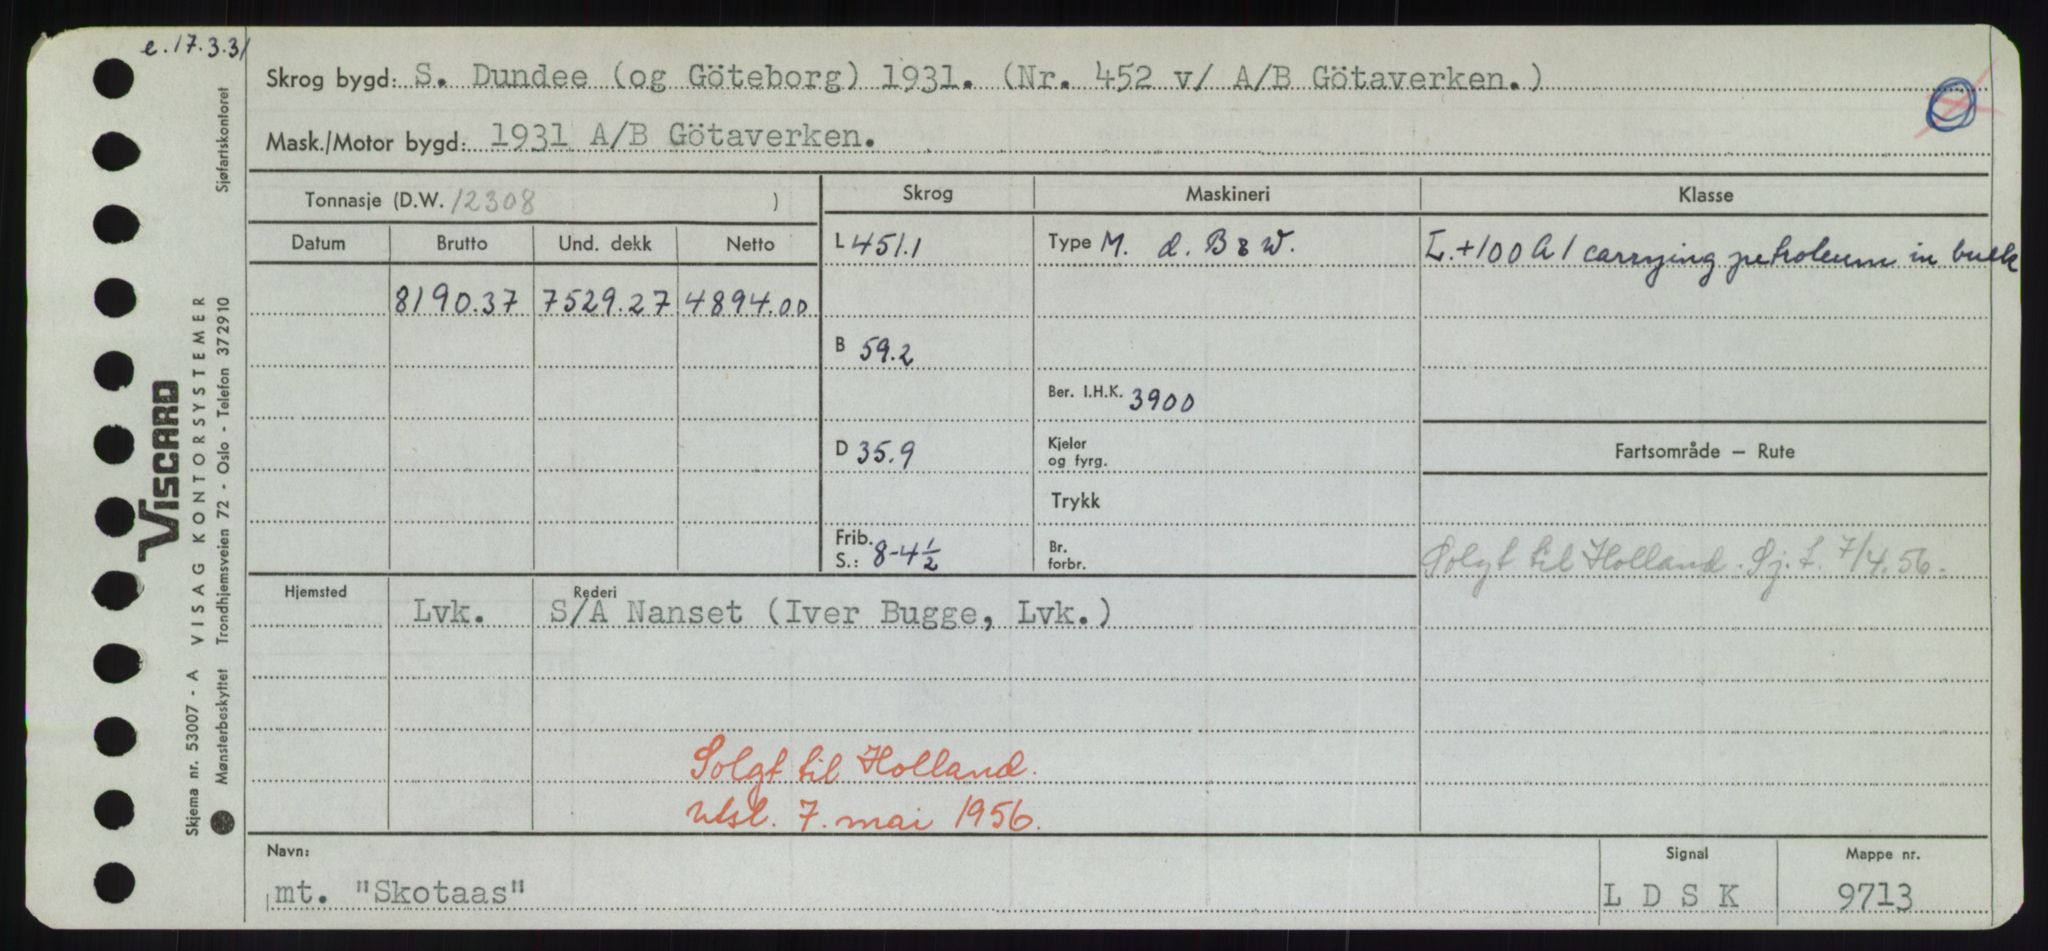 e. 17.3.31
Skrog bygd: S. Dundee (og Göteborg) 1931. (Nr. 452 v/ A/B Götaverken.)
Mask./Motor bygd: 1931 A/B Götaverken.
Tonnasje (D.W. 12308 )
Skrog
Maskineri
Klasse
Datum Brutto Und. dekk Netto
L 451.1
Type M. d. B & W.
L. +100 A 1 carrying petroleum in bulk
8190.37 7529.27 4894.00
B 59.2
Ber. I.H.K. 3900
D 35.9
Kjeler
og fyrg.
Fartsområde – Rute
Trykk
Frib.
S.: 8-4½
Br.
forbr.
Solgt til Holland. Sj. f. 7/4.56.
Hjemsted Rederi
Lvk. S/A Nanset (Iver Bugge, Lvk.)
Solgt til Holland.
utsl. 7. mai 1956.
Navn:
Signal
Mappe nr.
mt. "Skotaas"
L D S K
9713
VISCARD
Skjema nr. 53007 - A VISAG KONTORSYSTEMER
Mønsterbeskyttet Trondhjemsveien 72 - Oslo - Telefon 372910
Sjøfartskontoret